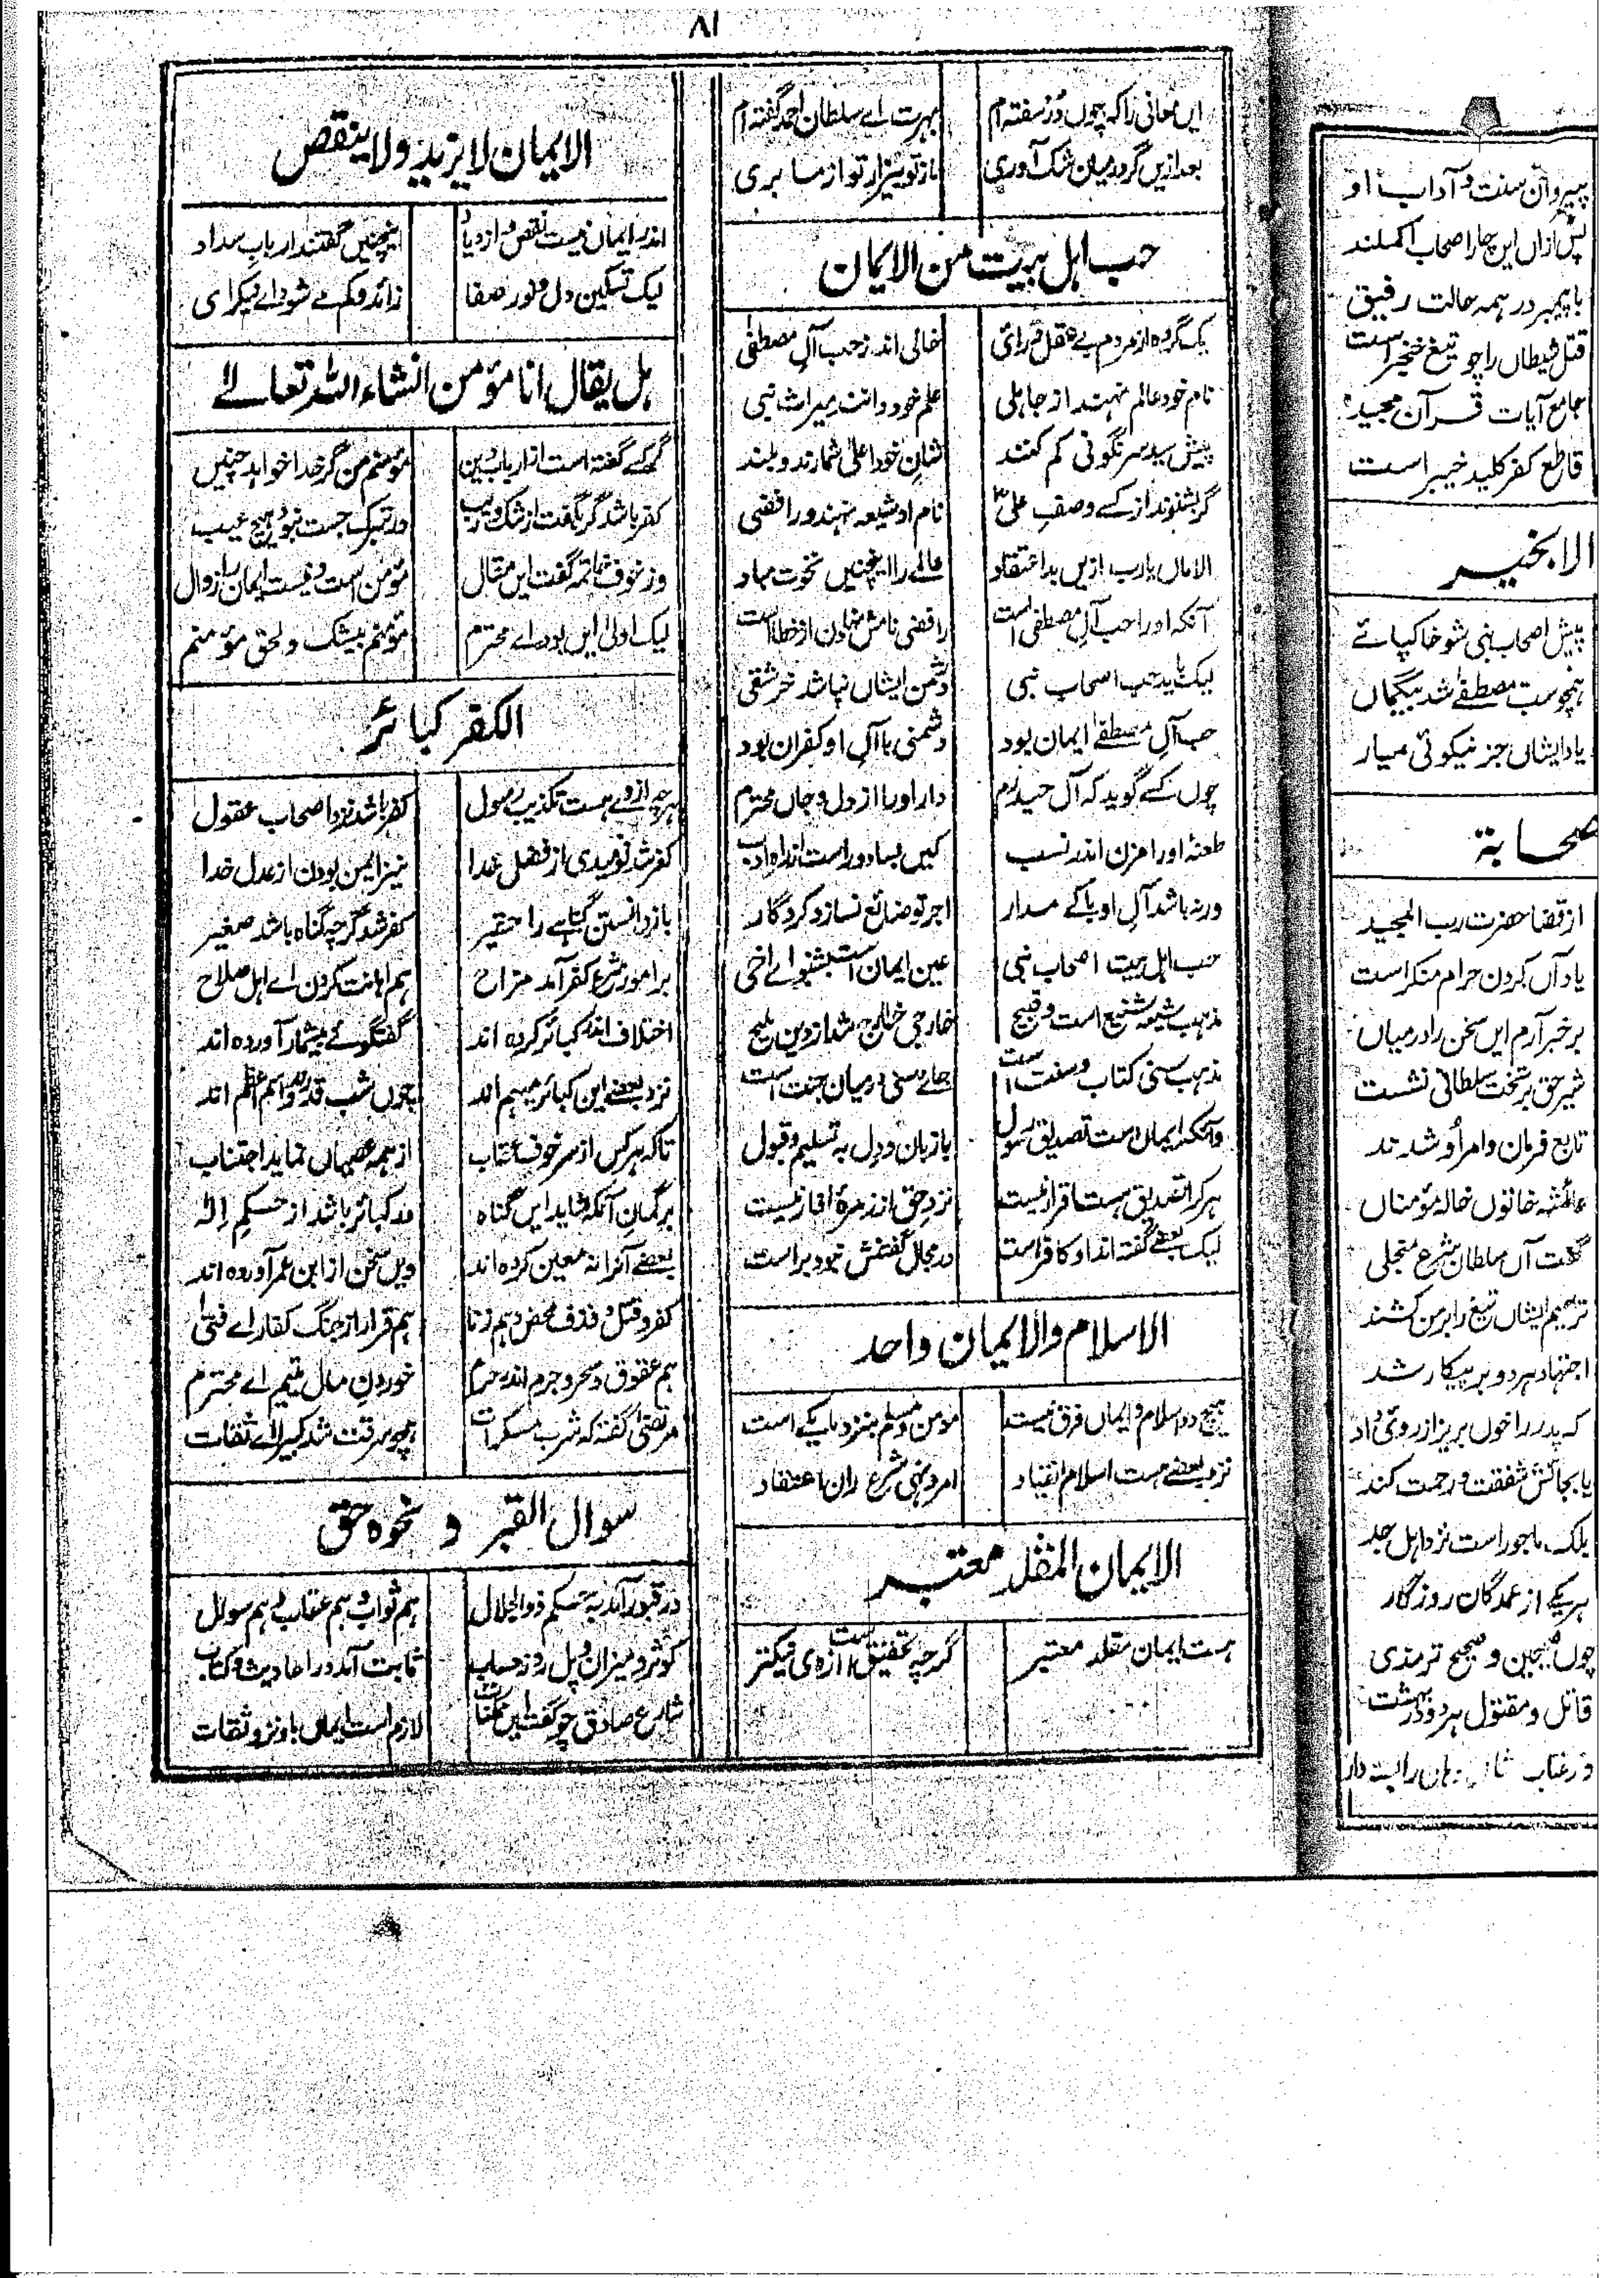 ٨١
ایں معانی را کہ چوں دُر سفتہ ام
بہرت اے سلطان احمد گفتہ ام
بعد ازیں گر در میان شک آوری
ما ز تو بیزار تو از ما بری
حب اہل بیت من الایمان
یک گروہ از مردم بے عقل و رائی
خالی اند از حب آلِ مصطفٰی
نام خود عالم نہند از جاہلی
علم خود دانند میراث نبی
پیش سید سرنگونی کم کنند
شانِ خود اعلیٰ شمارند و بلند
گر بشنوند از کسے وصفِ علیؓ
نام او شیعہ نہند و رافضی
الاماں یا رب ازیں بد اعتقاد
عالمے را اینچنیں نخوت مباد
آنکہ او را حب آلِ مصطفٰی است
رافضی نامش نہادن از خطا است
لیک باید حب اصحاب نبی
دشمن ایشاں نباشد جز شقی
حب آلِ مصطفےٰ ایمان بود
دشمنی با آلِ او کفران بود
چوں کسے گوید کہ آل حیدرم
دار او را از دل و جاں محترم
طعنہ او را مزن اندر نسب
کیں بسا دور است از راہ ادب
ورنہ باشد آلِ او باکے مدار
اجر تو ضائع نسازد کردگار
حب اہل بیت اصحاب نبی
عین ایمان است بشنو اے اخی
مذہب شیعہ شنیع است و قبیح
خارجی خارج شد از دین ملیح
مذہب سنی کتاب و سنت است
جائے سنی درمیان جنت است
وانکہ ایمان است تصدیق رسول
با زبان و دل بہ تسلیم و قبول
ہر کرا تصدیق ہست اقرار نیست
نزد حق اندر زمرۂ کفار نیست
لیک بعضے گفتہ اند او کافر است
در مجال گفتنش خود بر است
الاسلام والایمان واحد
ہیچ در اسلام و ایماں فرق نیست
مومن و مسلم بنزد ما یکے است
نزد بعضے ہست اسلام انقیاد
امر و نہی شرع را با اعتقاد
الایمان المقلد معتبر
ہست ایمان مقلد معتبر
گرچہ تحقیق است ازوی نیکتر
الایمان لا یزید ولا ینقص
اندر ایمان نیست نقص و ازدیاد
اینچنیں گفتند ارباب سداد
لیک تسکین دل و نور صفا
زائد و کم مے شود اے نیکرای
ہل یقال انا مؤمن انشاء اللہ تعالےٰ
گر کسے گفتہ است از ارباب دین
مؤمنم من گر خدا خواہد چنیں
کفر باشد گر بگفت از شک و ریب
ور تبرک جست نبود ہیچ عیب
وز خوف خاتمہ گفت ایں مقال
مؤمن است و نیست ایمان را زوال
لیک اولیٰ ایں بود اے محترم
مؤمنم بیشک و بحق مؤمنم
الکفر کبائر
ہرچہ از وے ہست تکذیب رسول
کفر باشد نزد اصحاب عقول
کفر شد نومیدی از فضل خدا
نیز ایمن بودن از عدل خدا
باز دانستن گناہے را حقیر
کفر شد گرچہ گناہ باشد صغیر
بر امور شرع کفر آمد مزاح
ہم اہانت کردن اے اہل صلاح
اختلاف اندر کبائر کردہ اند
گفتگوئے بیشمار آوردہ اند
نزد بعضے ایں کبائر مبہم اند
چوں شب قدر و اسم اعظم اند
تاکہ ہر کس از سر خوف عتاب
از ہمہ عصیاں نماید اجتناب
بر گمان آنکہ شاید ایں گناہ
از کبائر باشد از حکم الٰہ
بعضے آنرا نہ معین کردہ اند
ویں سخن از ابن عمر آوردہ اند
کفر و قتل و قذف محض و ہم زنا
ہم فرار از جنگ کفار اے فتیٰ
ہم عقوق و سحر و جرم اندر حرم
خوردن مال یتیم اے محترم
مرتضیٰ گفتہ کہ شرب مسکرات
ہمچو سرقت شد کبیر اے ثقات
سوال القبر و نحوہ حق
در قبور آمد بہ حکم ذوالجلال
ہم ثواب و ہم عقاب و ہم سوال
کوثر و میزان و پل روز حساب
ثابت آمد در احادیث و کتاب
شارع صادق چو گفت ایں ممکنات
لازم است ایماں باو نزد ثقات
پیروان سنت و آداب او
پس ازاں ایں چار اصحاب اکملند
با پیمبر در ہمہ حالت رفیق
قتل شیطاں را چو تیغ خنجر است
جامع آیات قرآن مجید
قاطع کفر کلید خیبر است
الا بخیر
پیش اصحاب نبی شو خاکپائے
ہمچو سب مصطفےٰ شد بیگماں
یاد ایشاں جز نیکوئی میار
صحابة
از قضا حضرت رب المجید
یاد آں کردن حرام منکر است
بر خبر آرم ایں سخن را درمیاں
شیر حق بر تخت سلطانی نشست
تابع فرمان و امر او شدند
عائشہ خاتوں خالہ مؤمناں
گفت آں سلطان شرع منجلی
ترسم ایشاں تیغ را بر من کشند
اجتہاد ہر دو بر پیکار شد
کہ پدر را خوں بریز از روئی داد
یا بجائش شفقت و رحمت کند
بلکہ ماجور است نزد اہل جد
ہر یکے از عمدگان روزگار
چوں صحیحین و صحیح ترمذی
قاتل و مقتول ہر دو در بہشت
در عتاب شاں دہاں را بستہ دار